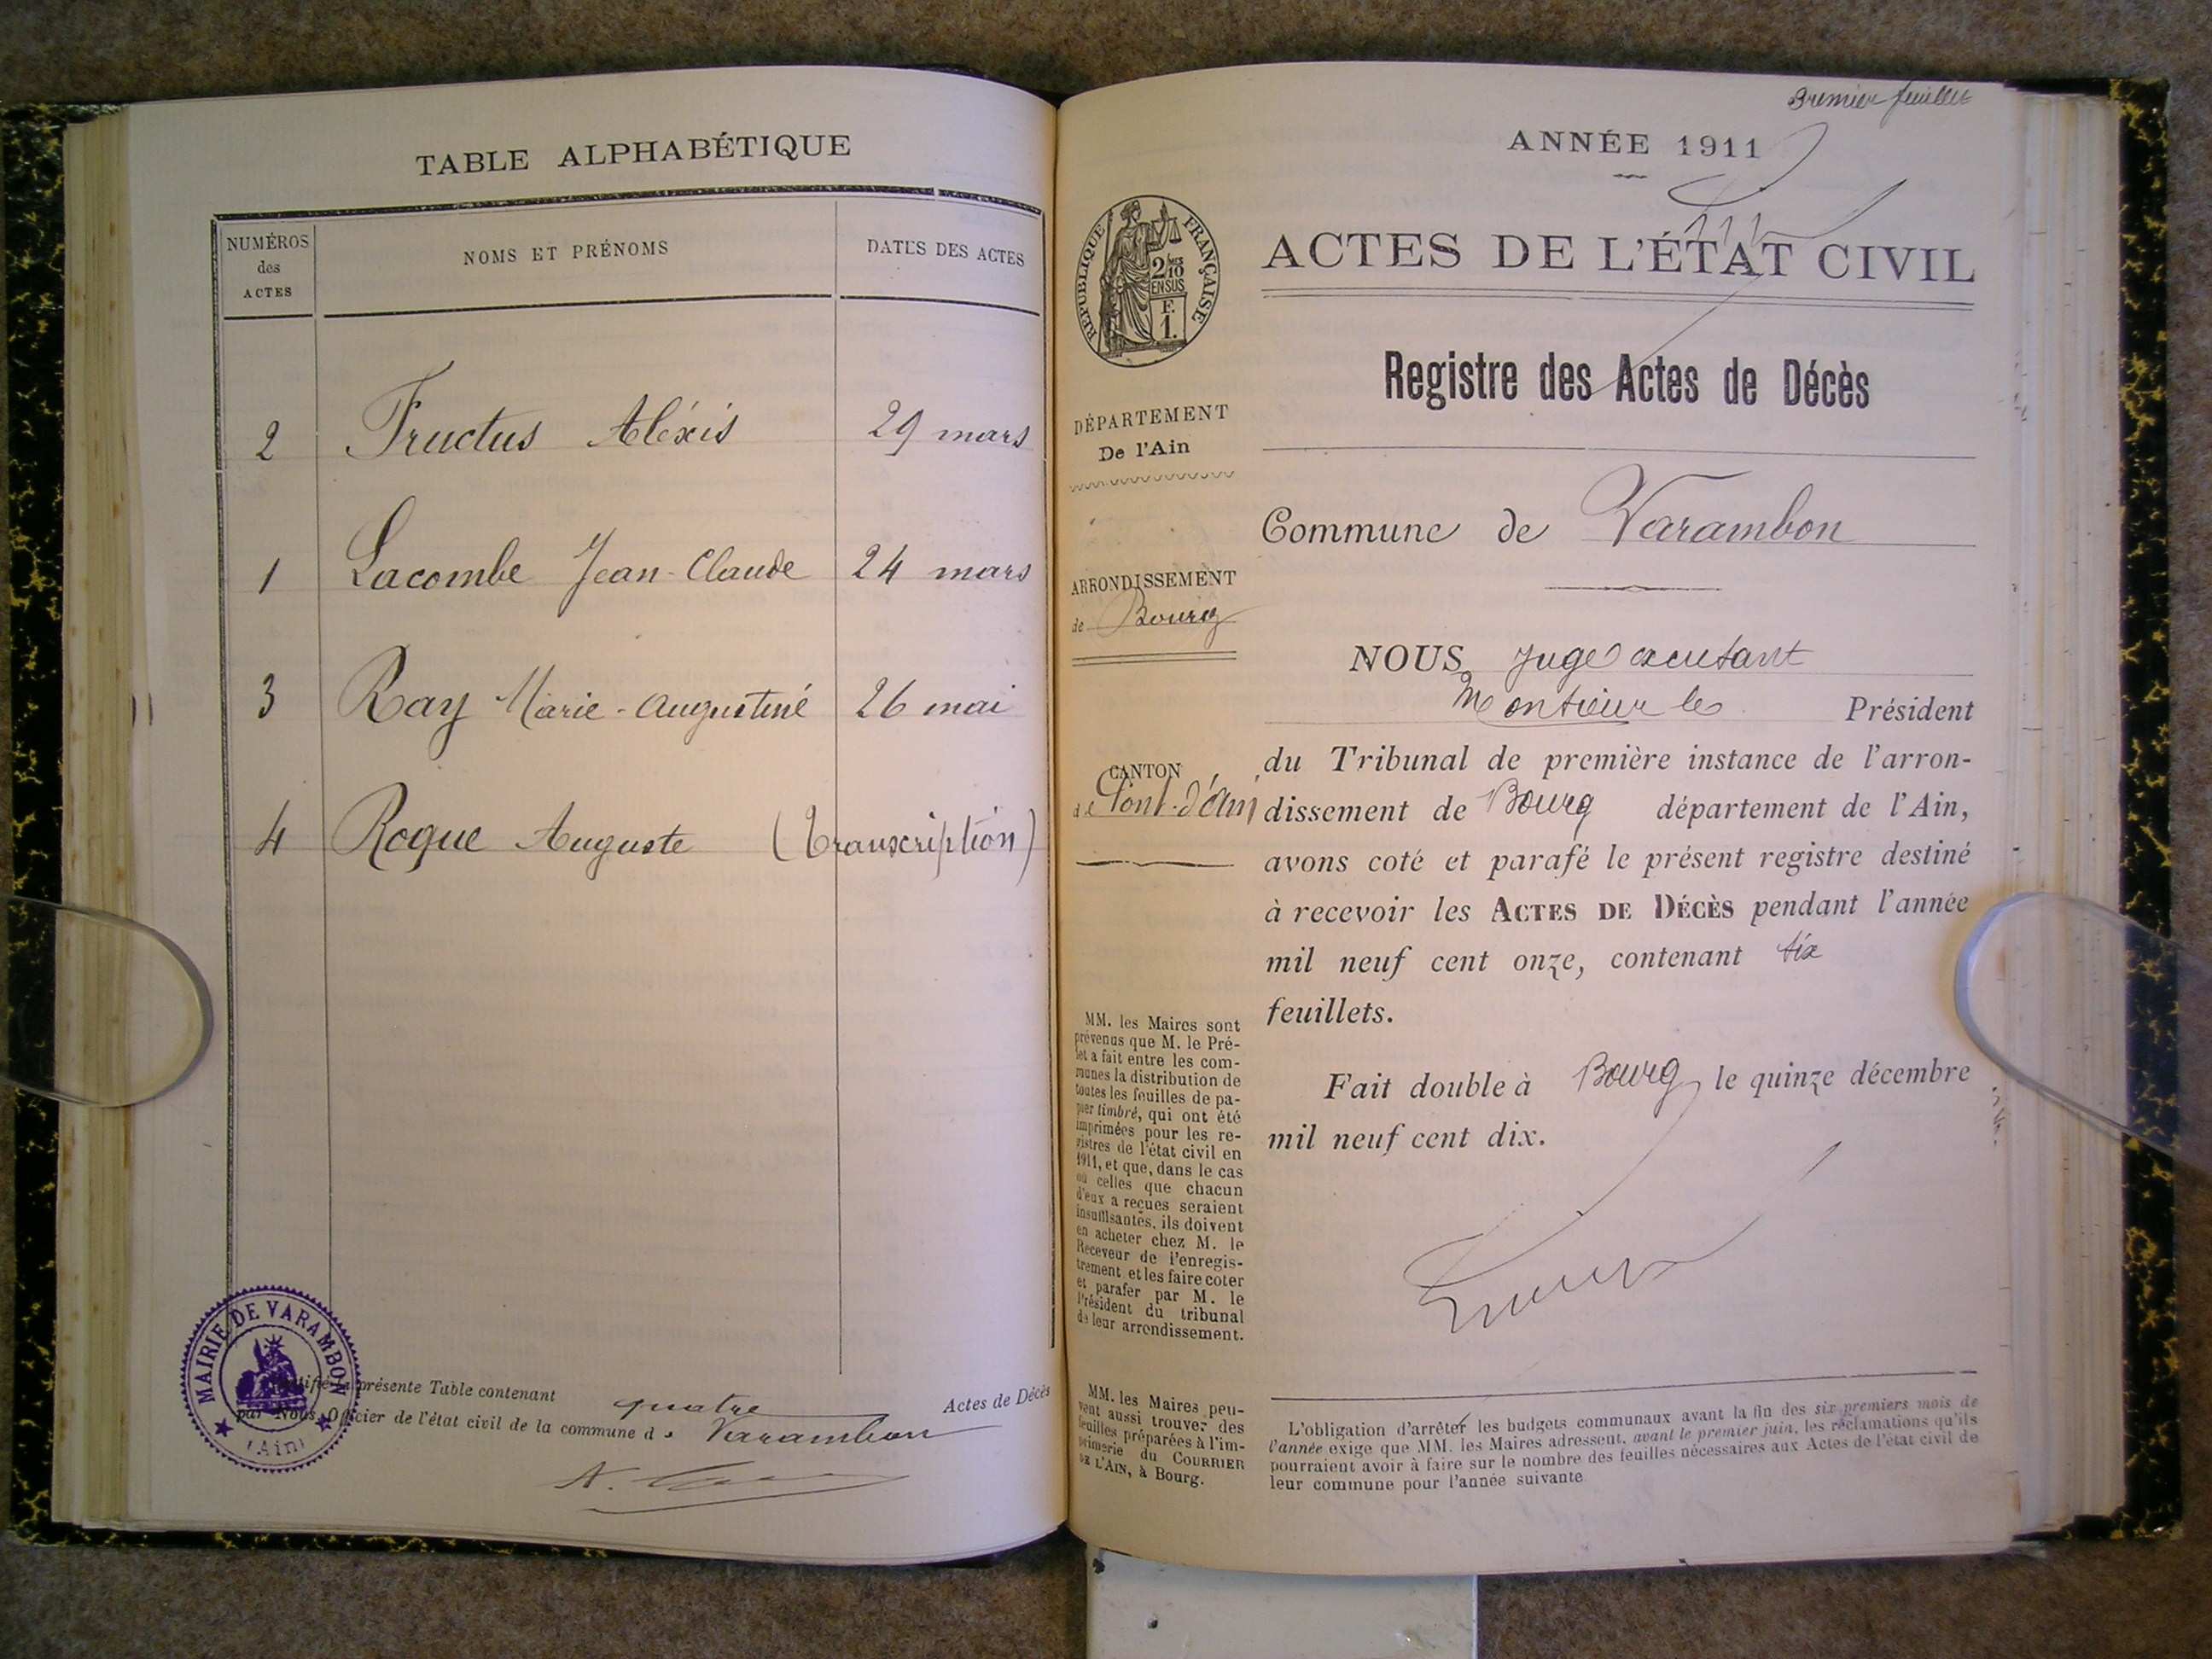 TABLE ALPHABÉTIQUE
NUMÉROS
des
ACTES
NOMS ET PRÉNOMS
DATES DES ACTES
2 Fructus Aléxis 29 mars
1 Lacombe Jean-Claude 24 mars
3 Ray Marie-Augustine 26 mai
4 Roque Auguste (Transcription)
présente Table contenant quatre Actes de Décès
par Nous, Officier de l'état civil de la commune de Varambon
MAIRIE DE VARAMBON
(Ain)
Premier feuillet
ANNÉE 1911
ACTES DE L'ÉTAT CIVIL
Registre des Actes de Décès
RÉPUBLIQUE FRANÇAISE
2/10
EN SUS
F.
1.
DÉPARTEMENT
De l'Ain
ARRONDISSEMENT
de Bourg
CANTON
de Pont-d'Ain
MM. les Maires sont
prévenus que M. le Pré-
fet a fait entre les com-
munes la distribution de
toutes les feuilles de pa-
pier timbré, qui ont été
imprimées pour les re-
gistres de l'état civil en
1911, et que, dans le cas
où celles que chacun
d'eux a reçues seraient
insuffisantes, ils doivent
en acheter chez M. le
Receveur de l'enregis-
trement et les faire coter
et parafer par M. le
Président du tribunal
de leur arrondissement.
MM. les Maires peu-
vent aussi trouver des
feuilles préparées à l'im-
primerie du COURRIER
DE L'AIN, à Bourg.
Commune de Varambon
NOUS Juge
Monsieur le Président
du Tribunal de première instance de l'arron-
dissement de Bourg département de l'Ain,
avons coté et parafé le présent registre destiné
à recevoir les ACTES DE DÉCÈS pendant l'année
mil neuf cent onze, contenant six
feuillets.
Fait double à Bourg, le quinze décembre
mil neuf cent dix.
L'obligation d'arrêter les budgets communaux avant la fin des six premiers mois de
l'année exige que MM. les Maires adressent, avant le premier juin, les réclamations qu'ils
pourraient avoir à faire sur le nombre des feuilles nécessaires aux Actes de l'état civil de
leur commune pour l'année suivante